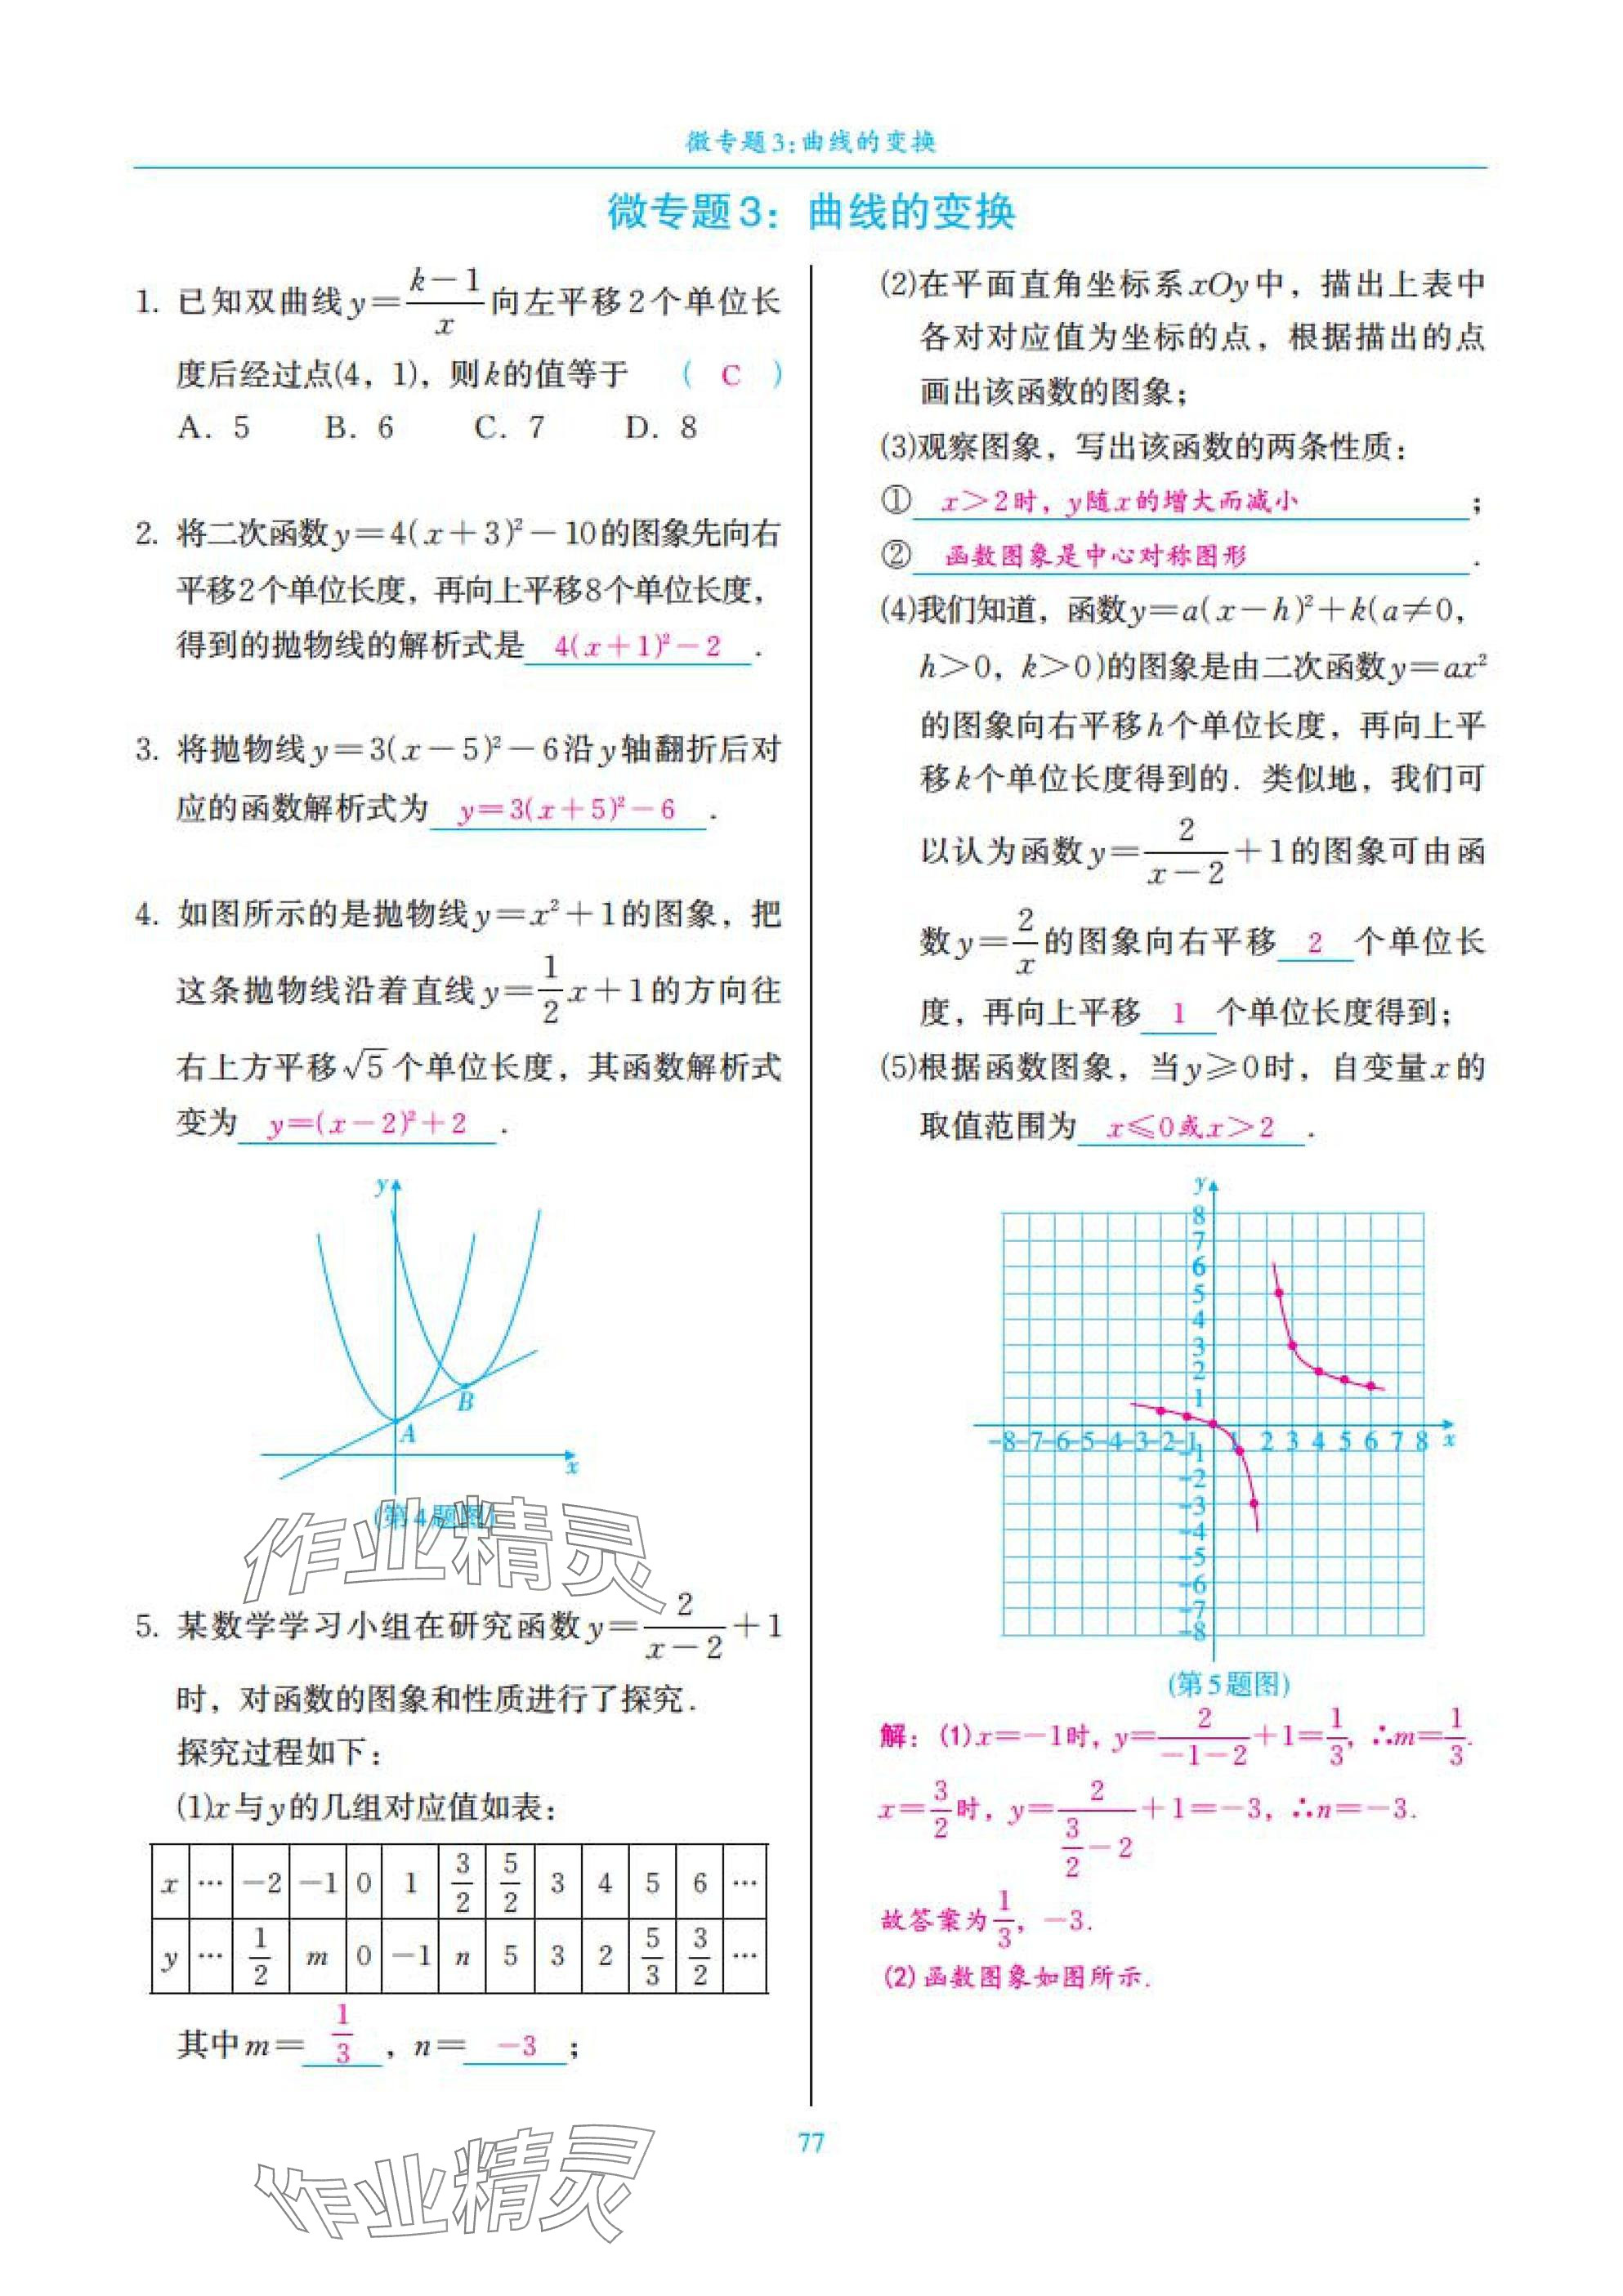 微专题3:曲线的变换
微专题3：曲线的变换
1. 已知双曲线y=(k-1)/x向左平移2个单位长
度后经过点(4，1)，则k的值等于 ( C )
A. 5 B. 6 C. 7 D. 8
2. 将二次函数y=4(x+3)²-10的图象先向右
平移2个单位长度，再向上平移8个单位长度，
得到的抛物线的解析式是 4(x+1)²-2 .
3. 将抛物线y=3(x-5)²-6沿y轴翻折后对
应的函数解析式为 y=3(x+5)²-6 .
4. 如图所示的是抛物线y=x²+1的图象，把
这条抛物线沿着直线y=1/2x+1的方向往
右上方平移√5个单位长度，其函数解析式
变为 y=(x-2)²+2 .
y
B
A
x
(第4题图)
作业精灵
5. 某数学学习小组在研究函数y=2/(x-2)+1
时，对函数的图象和性质进行了探究.
探究过程如下：
(1)x与y的几组对应值如表：
x … -2 -1 0 1 3/2 5/2 3 4 5 6 …
y … 1/2 m 0 -1 n 5 3 2 5/3 3/2 …
其中m= 1/3 ，n= -3 ；
(2)在平面直角坐标系xOy中，描出上表中
各对对应值为坐标的点，根据描出的点
画出该函数的图象；
(3)观察图象，写出该函数的两条性质：
① x>2时，y随x的增大而减小 ；
② 函数图象是中心对称图形 .
(4)我们知道，函数y=a(x-h)²+k(a≠0，
h>0，k>0)的图象是由二次函数y=ax²
的图象向右平移h个单位长度，再向上平
移k个单位长度得到的. 类似地，我们可
以认为函数y=2/(x-2)+1的图象可由函
数y=2/x的图象向右平移 2 个单位长
度，再向上平移 1 个单位长度得到；
(5)根据函数图象，当y≥0时，自变量x的
取值范围为 x≤0或x>2 .
y
8
7
6
5
4
3
2
1
-8-7-6-5-4-3-2-1 1 2 3 4 5 6 7 8 x
-1
-2
-3
-4
-5
-6
-7
-8
(第5题图)
解：(1)x=-1时，y=2/(-1-2)+1=1/3，∴m=1/3.
x=3/2时，y=2/(3/2-2)+1=-3，∴n=-3.
故答案为1/3，-3.
(2)函数图象如图所示.
77
作业精灵